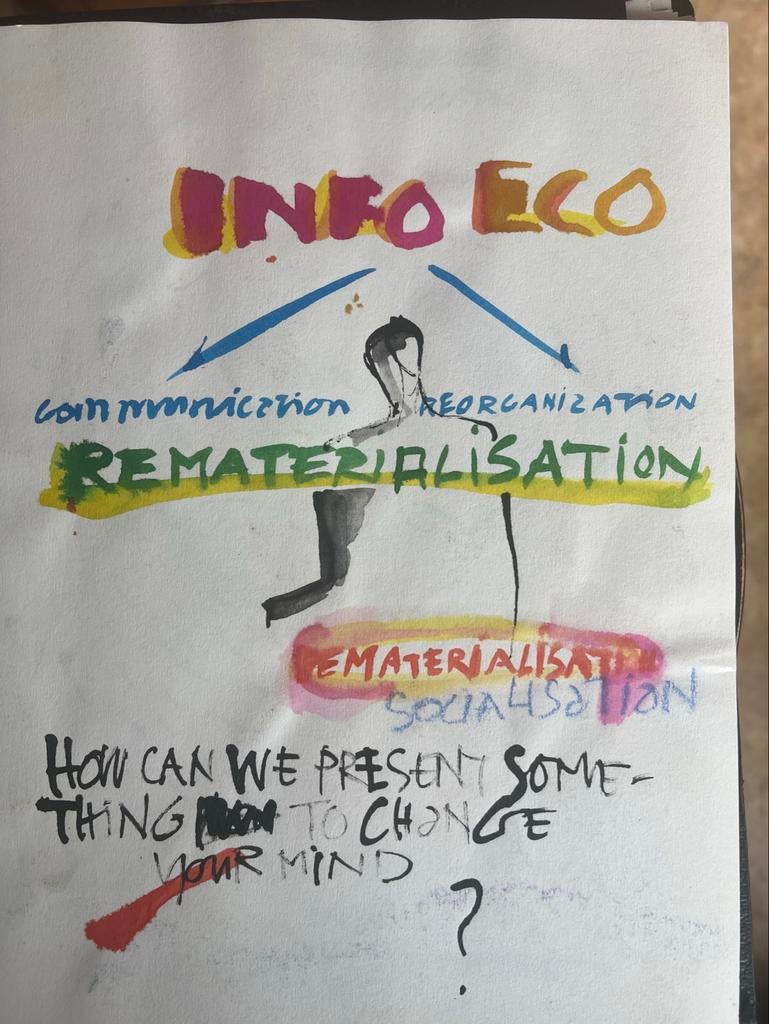 INFO ECO
communication REORGANIZATION
REMATERIALISATION
SOCIALISATION
HOW CAN WE PRESENT SOME-
THING TO CHANGE
YOUR MIND
?